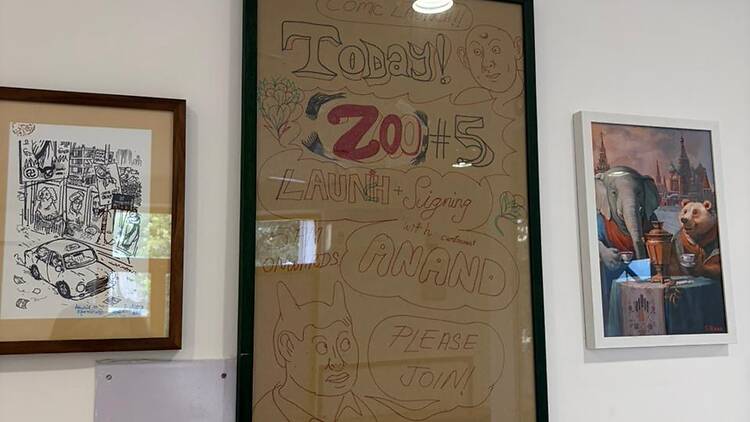 COMC LAUNCH!!
TODAY!
ZOO #5
LAUNH + Signing
with cartoonist
ONWARDS
ANAND
PLEASE
JOIN!